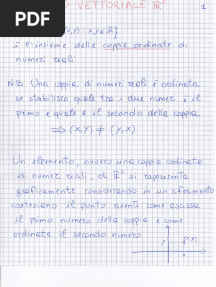 PDF
VETTORIALE R²
1
x,y∈R}
è l'insieme delle coppie ordinate di
numeri reali
N.B. Una coppia di numeri reali è ordinata
se stabilisco quale tra i due numeri è il
primo e quale è il secondo della coppia
⟹ (x,y) ≠ (y,x)
Un elemento, ovvero una coppia ordinata
di numeri reali, di R² si rappresenta
graficamente considerando in un riferimento
cartesiano il punto avente come ascissa
il primo numero della coppia e come
ordinata il secondo numero